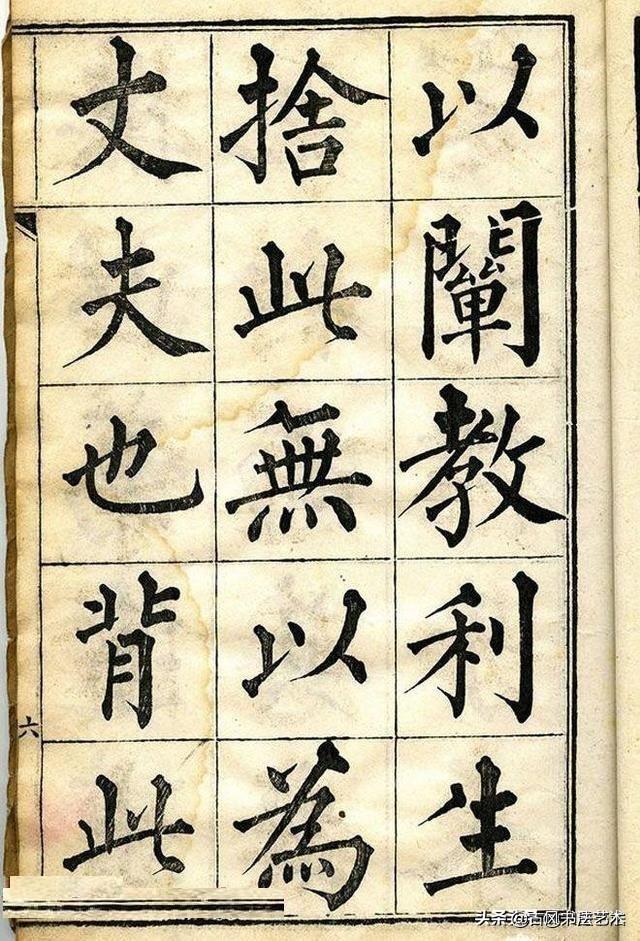 以闡教利生
捨此無以為
丈夫也背此
六
头条@古风书法艺术